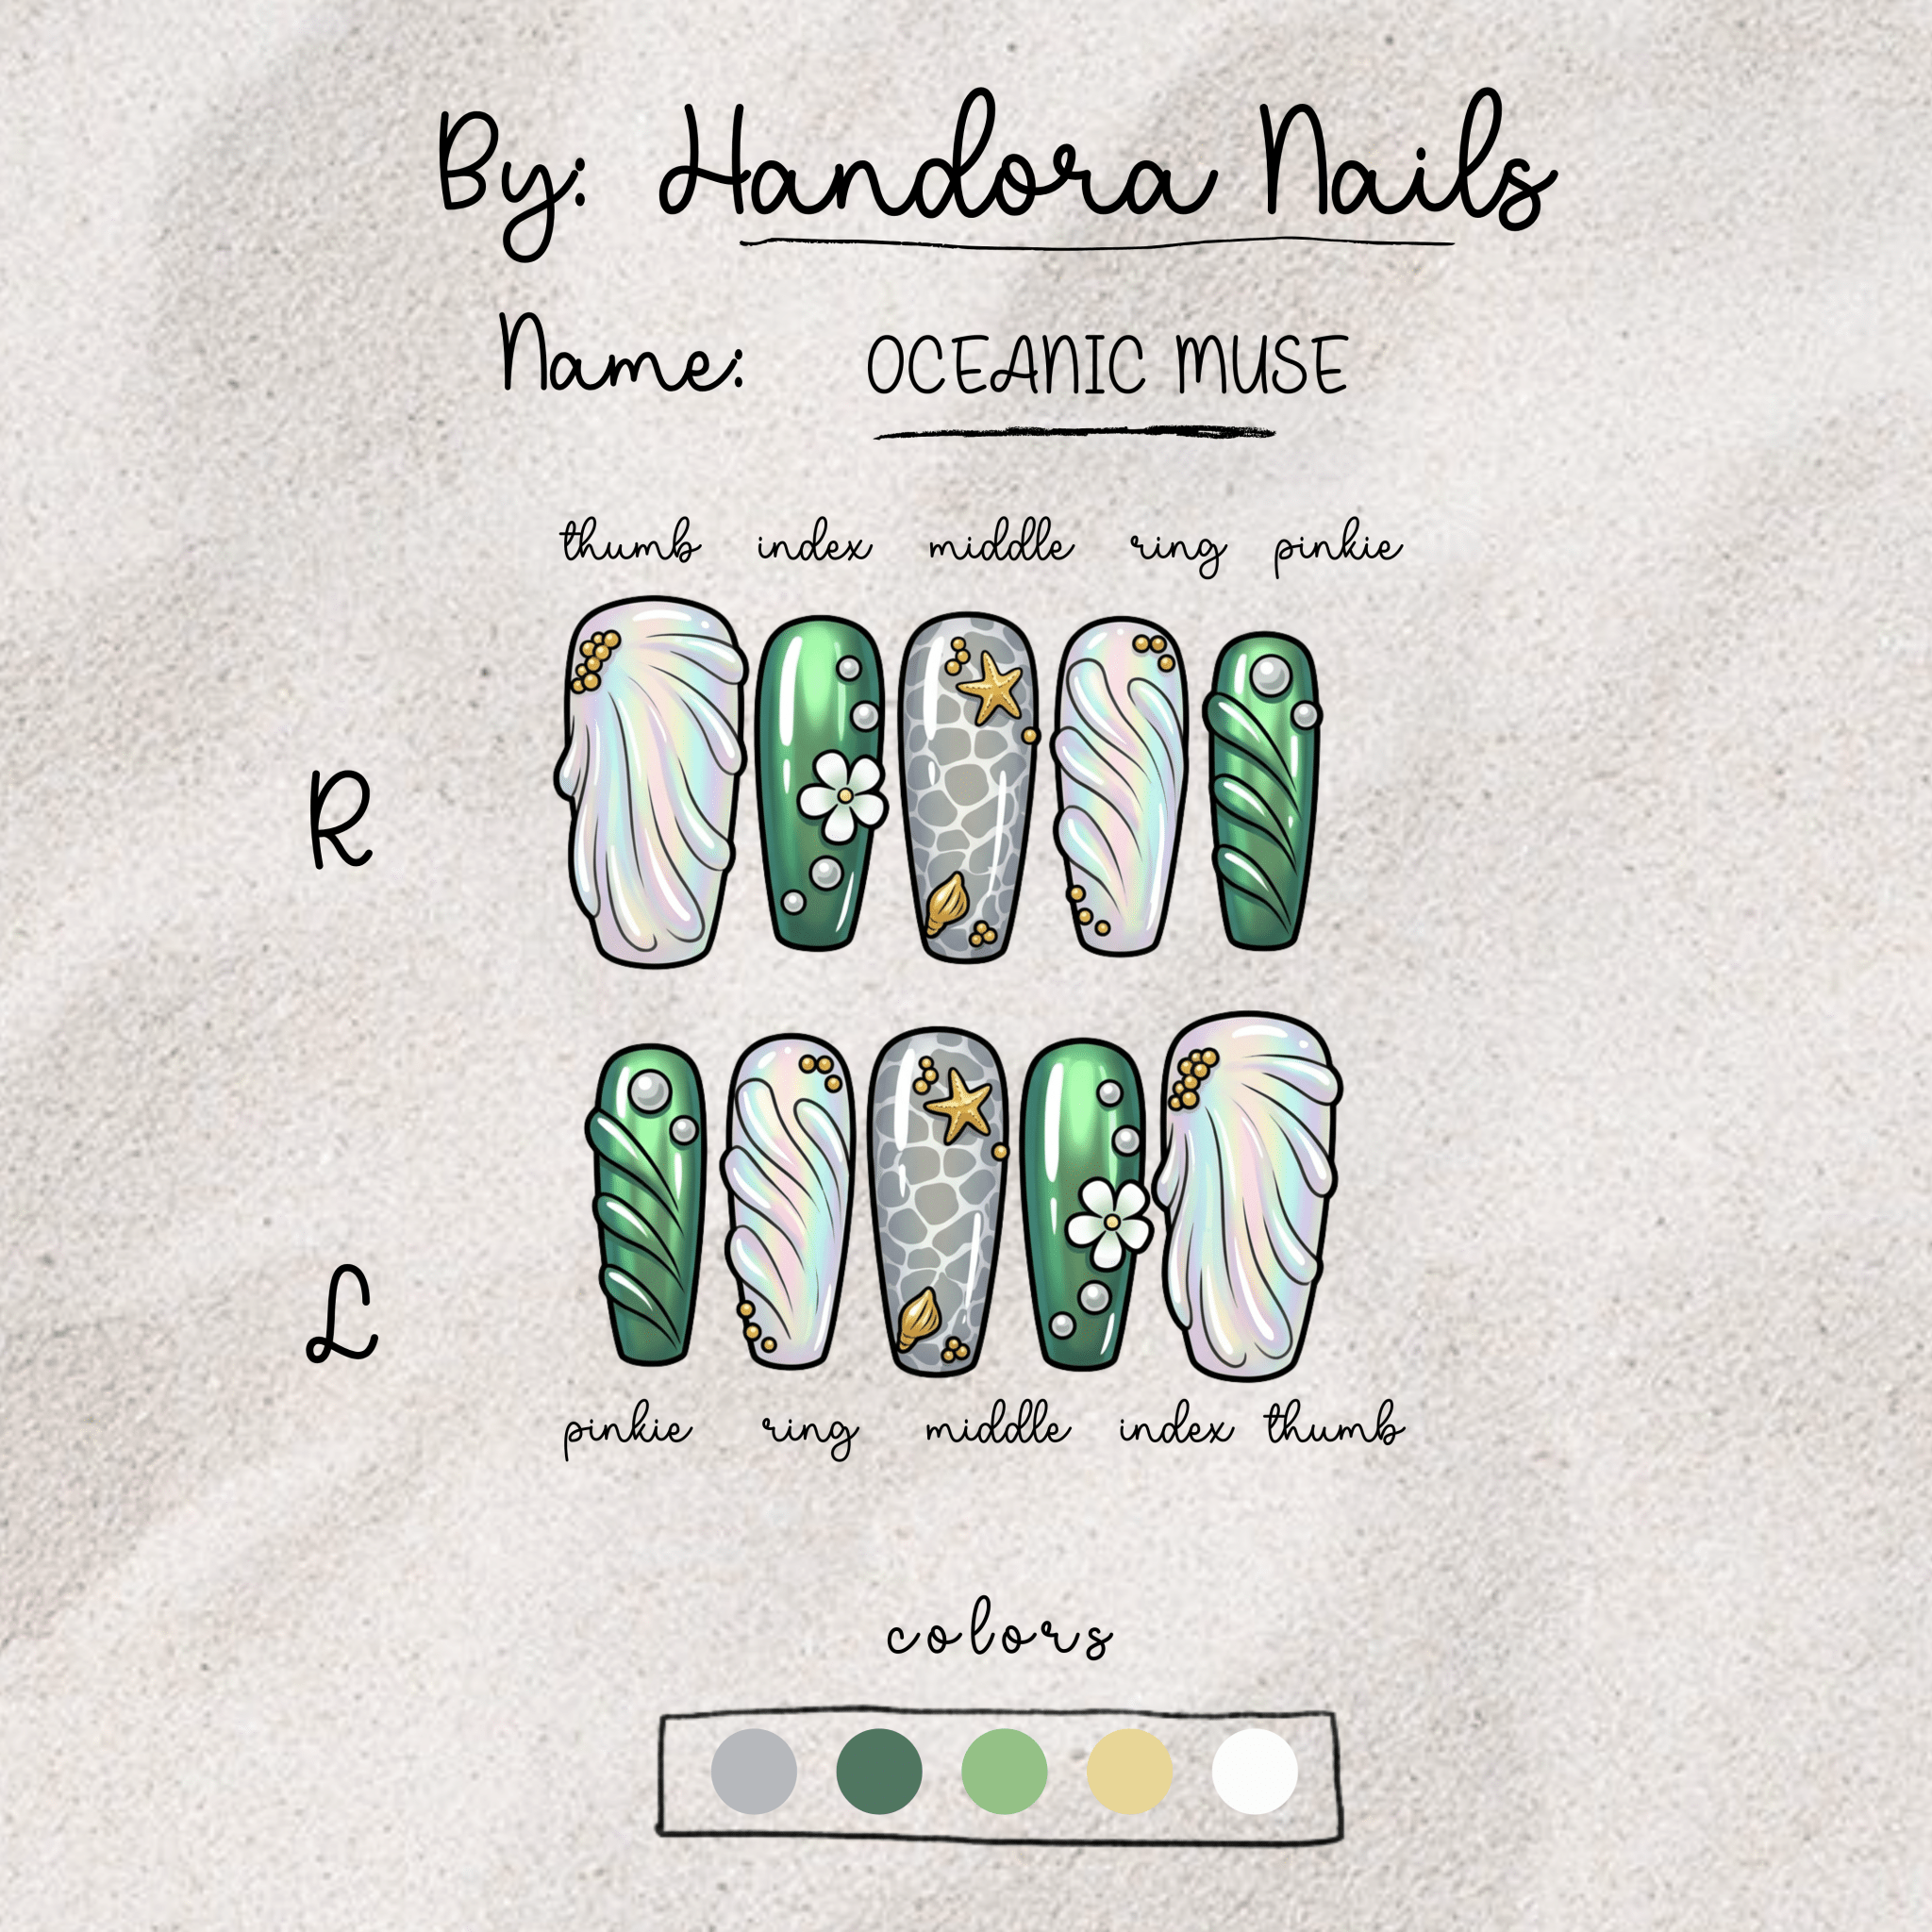 By: Handora Nails
Name: OCEANIC MUSE
thumb index middle ring pinkie
R
L
pinkie ring middle index thumb
colors